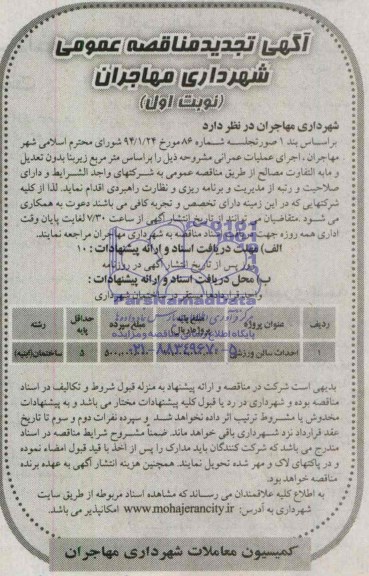 آگهی تجدیدمناقصه عمومی
شهرداری مهاجران
(نوبت اول)
شهرداری مهاجران در نظر دارد
براساس بند ۱ صورتجلسه شماره ۸۶ مورخ ۹۴/۱/۲۴ شورای محترم اسلامی شهر
مهاجران ، اجرای عملیات عمرانی مشروحه ذیل را براساس متر مربع زیربنا بدون تعدیل
و مابه التفاوت مصالح از طریق مناقصه عمومی به شرکتهای واجد الشرایط و دارای
صلاحیت و رتبه از مدیریت و برنامه ریزی و نظارت راهبردی اقدام نماید. لذا از کلیه
شرکتهایی که در این زمینه دارای تخصص و تجربه کافی می باشند دعوت به همکاری
می شود .متقاضیان می توانند از تاریخ انتشار آگهی از ساعت ۷/۳۰ لغایت پایان وقت
اداری همه روزه جهت اسناد مناقصه به شهرداری مهاجران مراجعه نمایند.
الف) مهلت دریافت اسناد و ارائه پیشنهادات : ۱۰
روز پس از تاریخ انتشار آگهی در روزنامه
ب) محل دریافت اسناد و ارائه پیشنهادات :
شهرداری
ParsNamadData
پایگاه اطلاع رسانی مناقصه و مزایده
۰۲۱-۸۸۳۴۹۶۷۰-۵
ردیف عنوان پروژه مبلغ سپرده حداقل پایه رشته
۱ احداث سالن ورزشی ۵ ساختمان(ابنیه)
بدیهی است شرکت در مناقصه و ارائه پیشنهاد به منزله قبول شروط و تکالیف در اسناد
مناقصه بوده و شهرداری در رد یا قبول کلیه پیشنهادات مختار می باشد و به پیشنهادات
مخدوش یا مشروط ترتیب اثر داده نخواهد شد و سپرده نفرات دوم و سوم تا تاریخ
عقد قرارداد نزد شهرداری باقی خواهد ماند. ضمناً مشروح شرایط مناقصه در اسناد
مندرج می باشد که شرکت کنندگان باید مدارک را پس از اخذ با قید قبول امضاء نموده
و در پاکتهای لاک و مهر شده تحویل نمایند. همچنین هزینه انتشار آگهی به عهده برنده
مناقصه خواهد بود.
به اطلاع کلیه علاقمندان می رساند که مشاهده اسناد مربوطه از طریق سایت
شهرداری به آدرس: www.mohajerancity.ir امکانپذیر می باشد.
کمیسیون معاملات شهرداری مهاجران